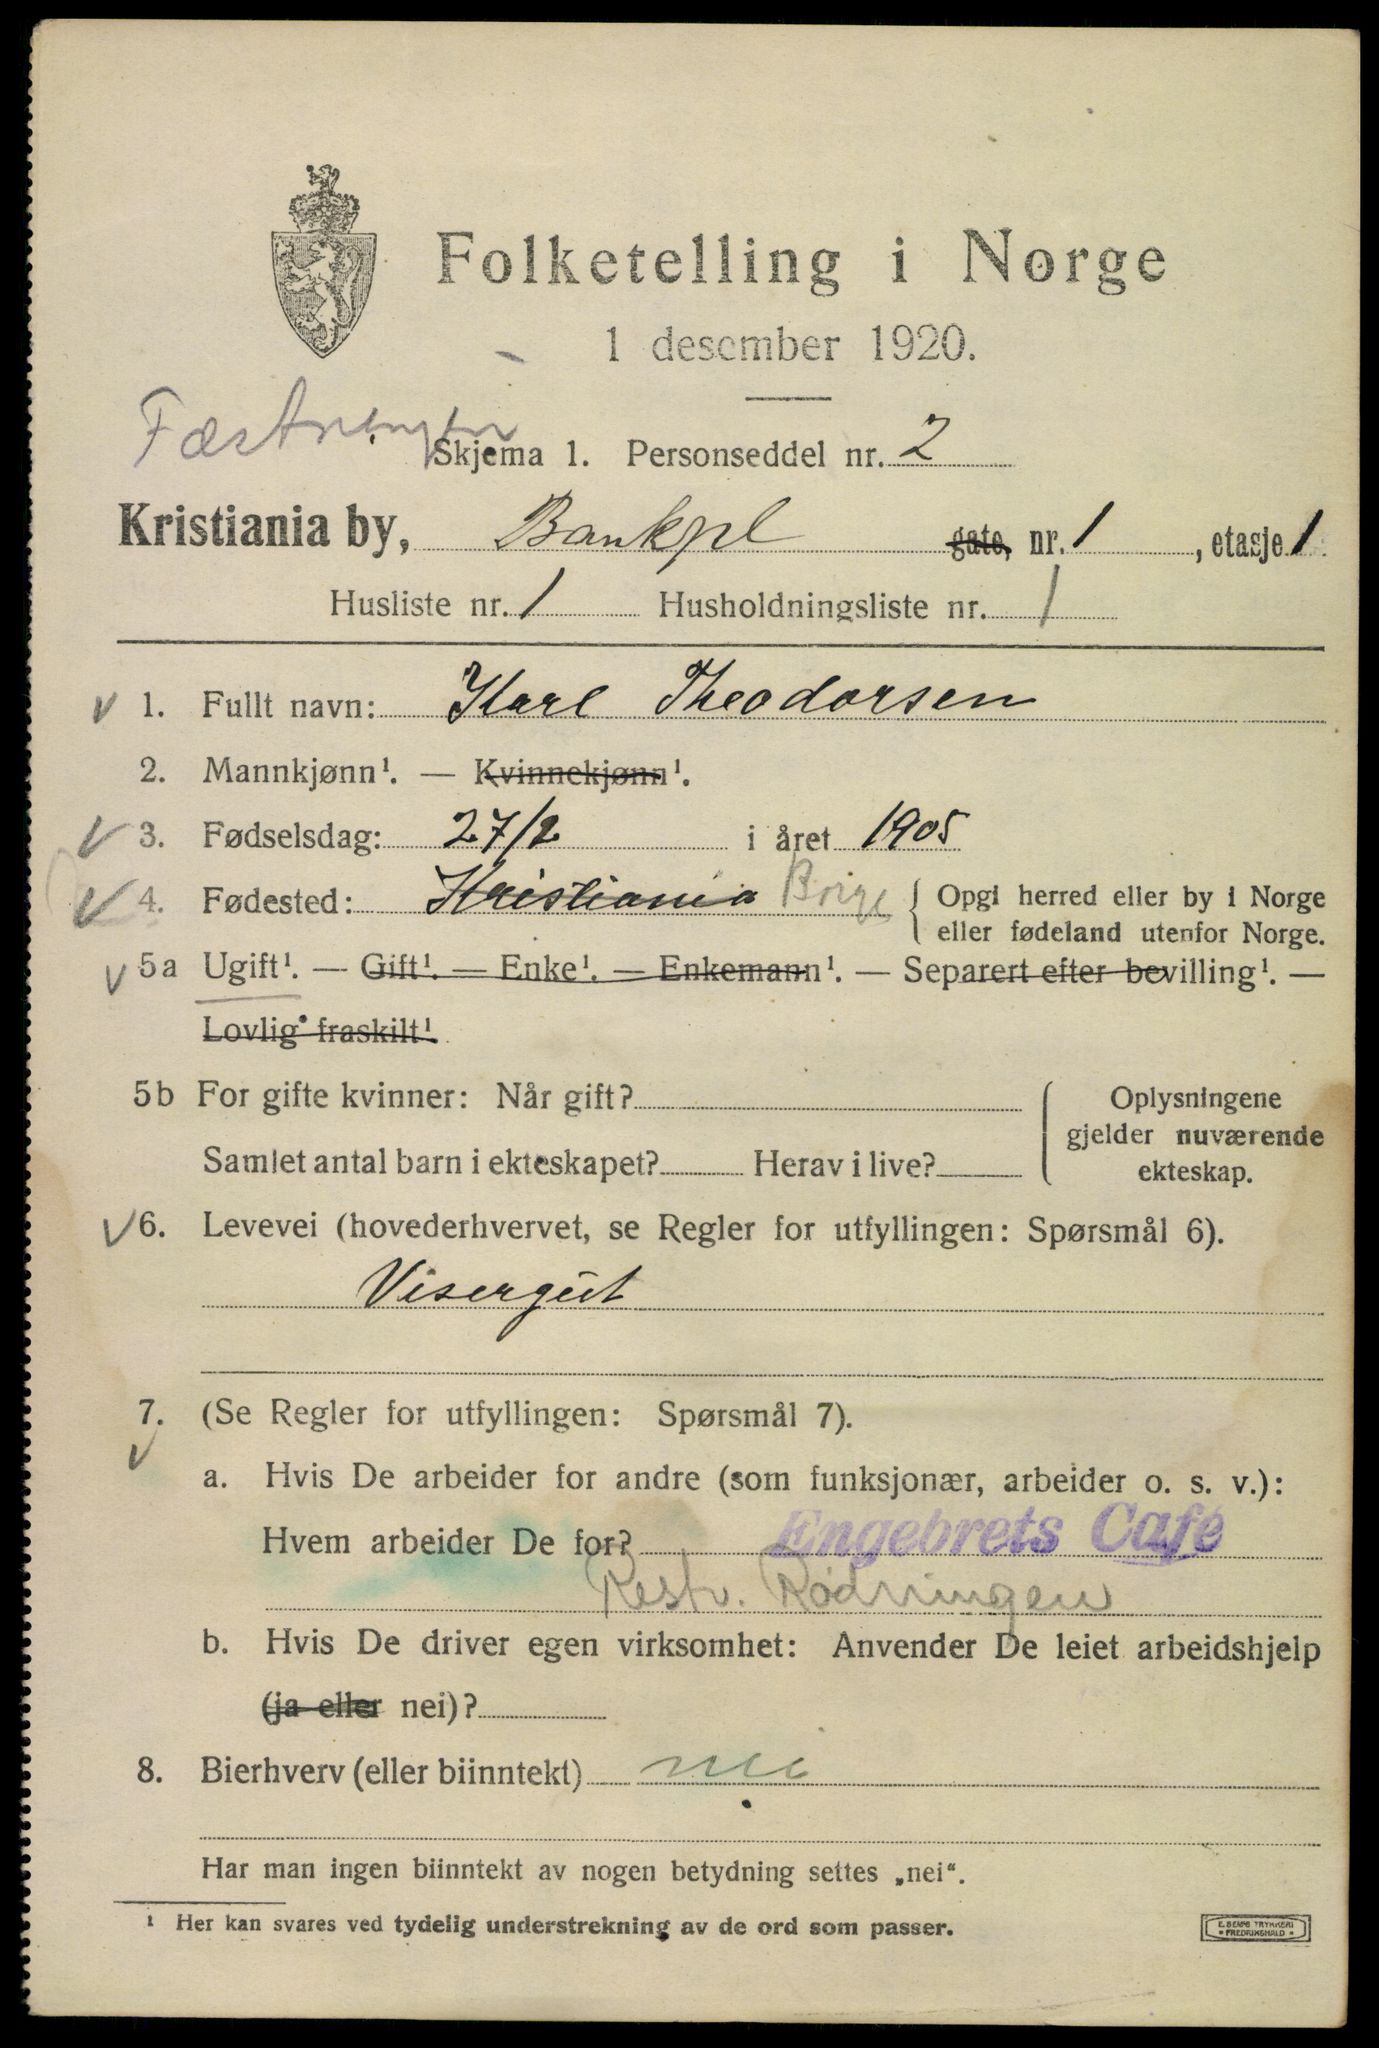 Folketelling i Norge
1 desember 1920.
Skjema 1. Personseddel nr. 2
Kristiania by, Bankpl gate, nr. 1, etasje 1
Husliste nr. 1 Husholdningsliste nr. 1
1. Fullt navn: Karl Theodorsen
2. Mannkjønn¹. — Kvinnekjønn¹.
3. Fødselsdag: 27/2 i året 1905
4. Fødested: Kristiania Borge { Opgi herred eller by i Norge
eller fødeland utenfor Norge.
5a Ugift¹. — Gift¹. — Enke¹. — Enkemann¹. — Separert efter bevilling¹. —
Lovlig fraskilt¹.
5b For gifte kvinner: Når gift? { Oplysningene
gjelder nuværende
Samlet antal barn i ekteskapet? Herav i live? ekteskap.
6. Levevei (hovederhvervet, se Regler for utfyllingen: Spørsmål 6).
Visergut
7. (Se Regler for utfyllingen: Spørsmål 7).
a. Hvis De arbeider for andre (som funksjonær, arbeider o. s. v.):
Hvem arbeider De for? Engebrets Café
Restv.
b. Hvis De driver egen virksomhet: Anvender De leiet arbeidshjelp
(ja eller nei)?
8. Bierhverv (eller biinntekt) nei
Har man ingen biinntekt av nogen betydning settes „nei“.
¹ Her kan svares ved tydelig understrekning av de ord som passer.
E. SEMS TRYKKERI
* FREDRIKSHALD *